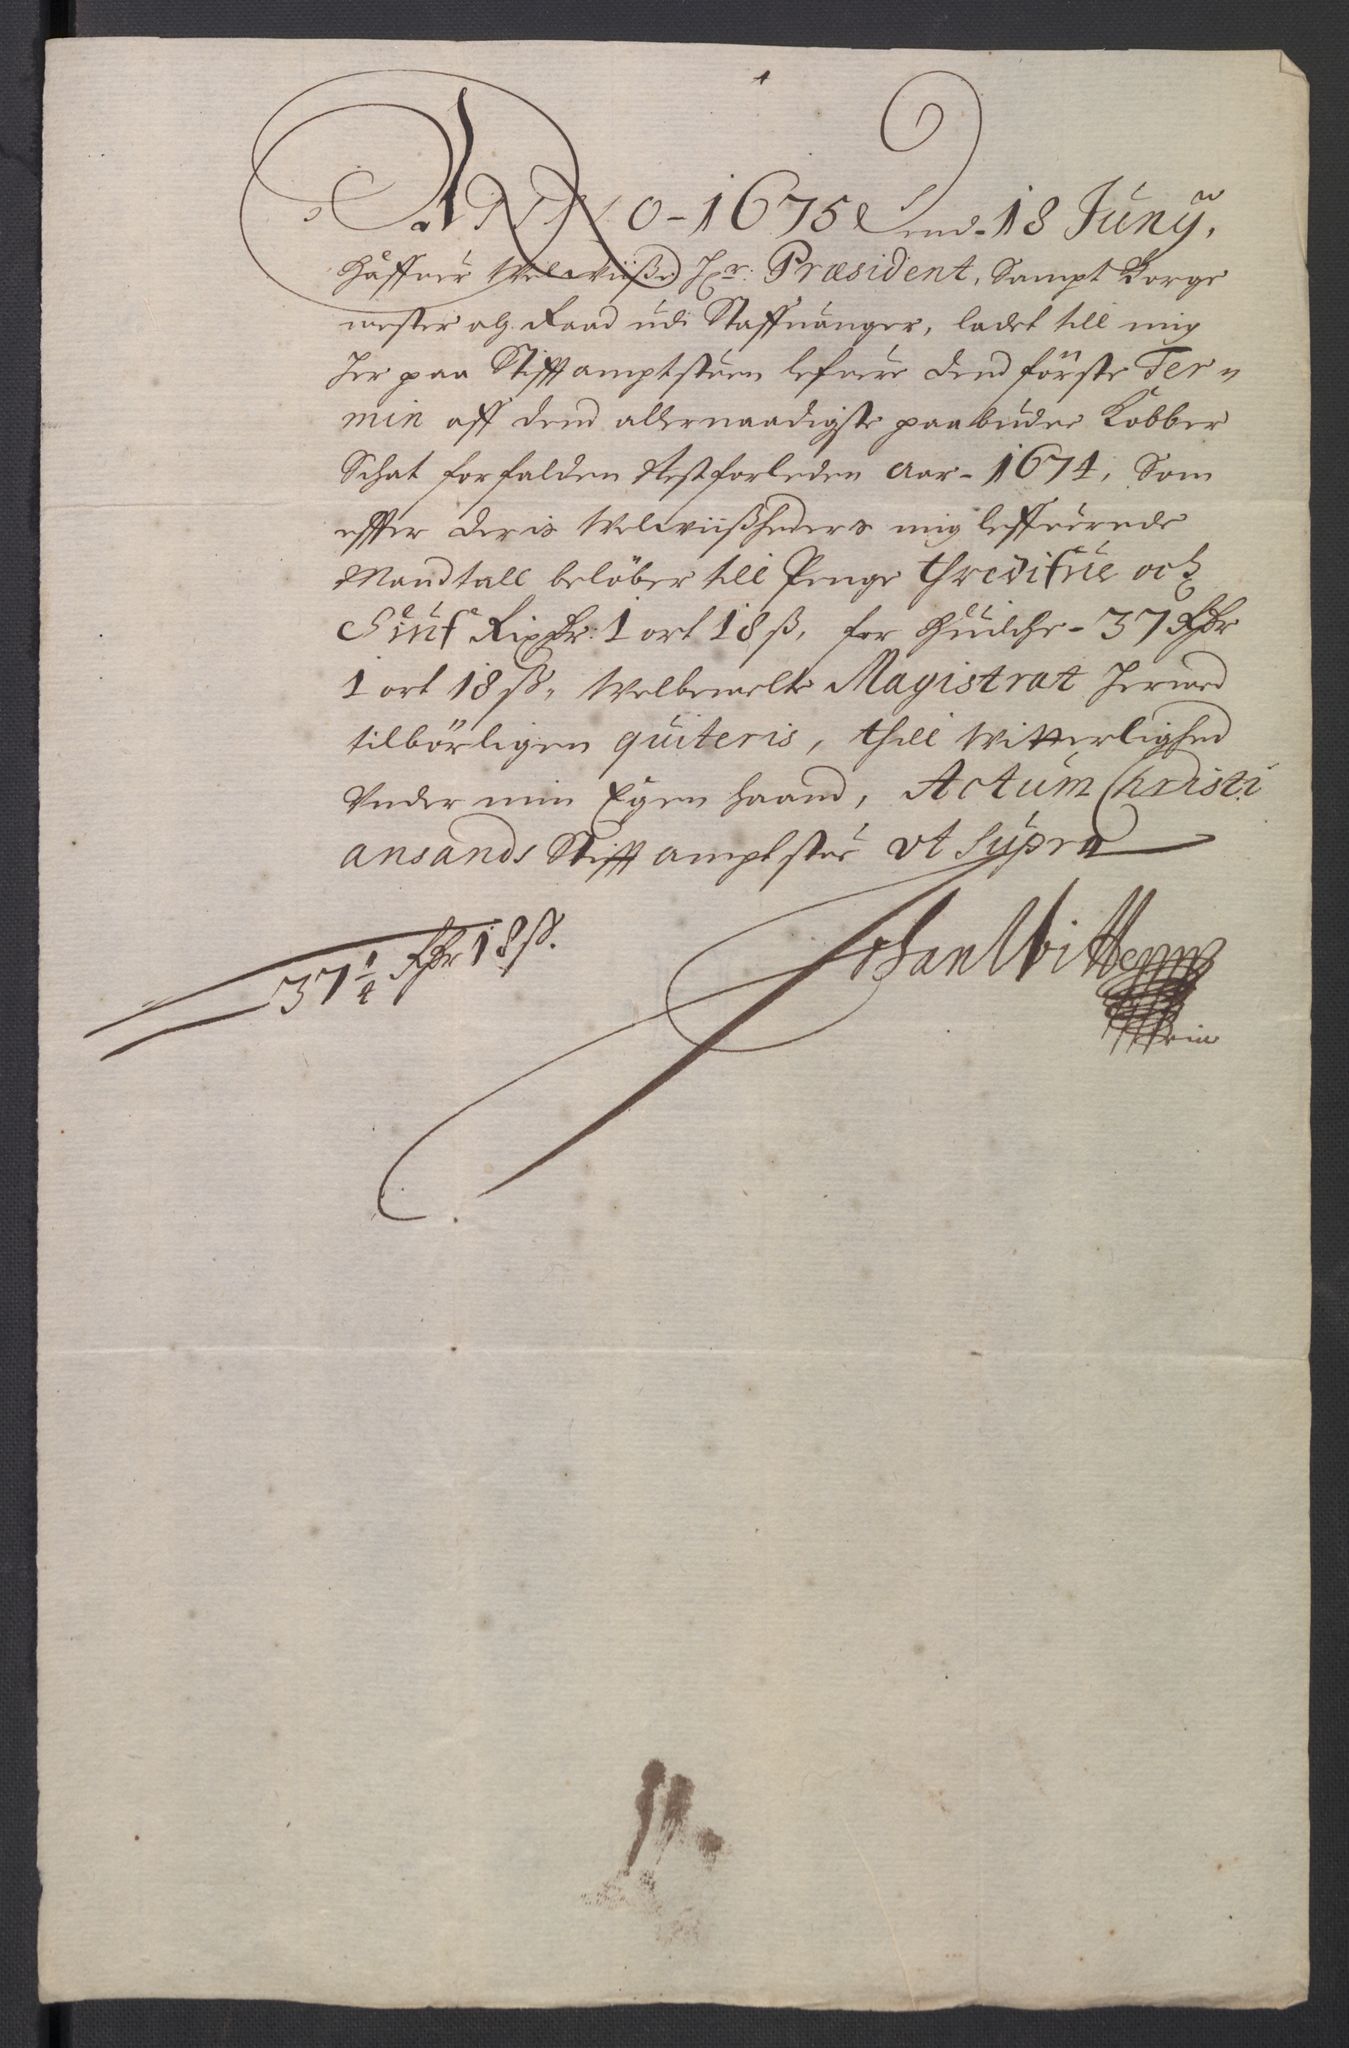 ANNO - 1675 Dend - 18 Junÿ,
Haffuer Welwiiße Hr: Præsident, Sampt Borge
mester og Raad udi Staffuanger, ladet till mig
her paa Stifftamptstuen lefuere dend förste Ter
min aff dend allernaadigste paabudne Kobber
Schat forfalden Nestforleden Aar - 1674, Som
effter deris Welwiißheders mig leffuerede
Mandtall belöber till Penge thredifue och
Siuf Rixdr: 1 ort 18 ß, for huilche - 37 Rdr
1 ort 18 ß, Welbemelte Magistrat hermed
tilbörligen quiteris, thill Witterlighed
Under min Egen haand, Actum Christi
ansands Stifftamptstue ut Supra
37 1/4 Rdr 18 ß.
Johan Wittern